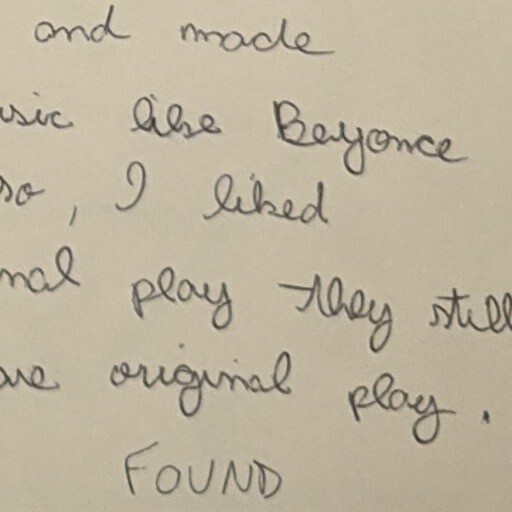 and made
usic like Beyonce
so, I liked
nal play they still
ve original play.
FOUND